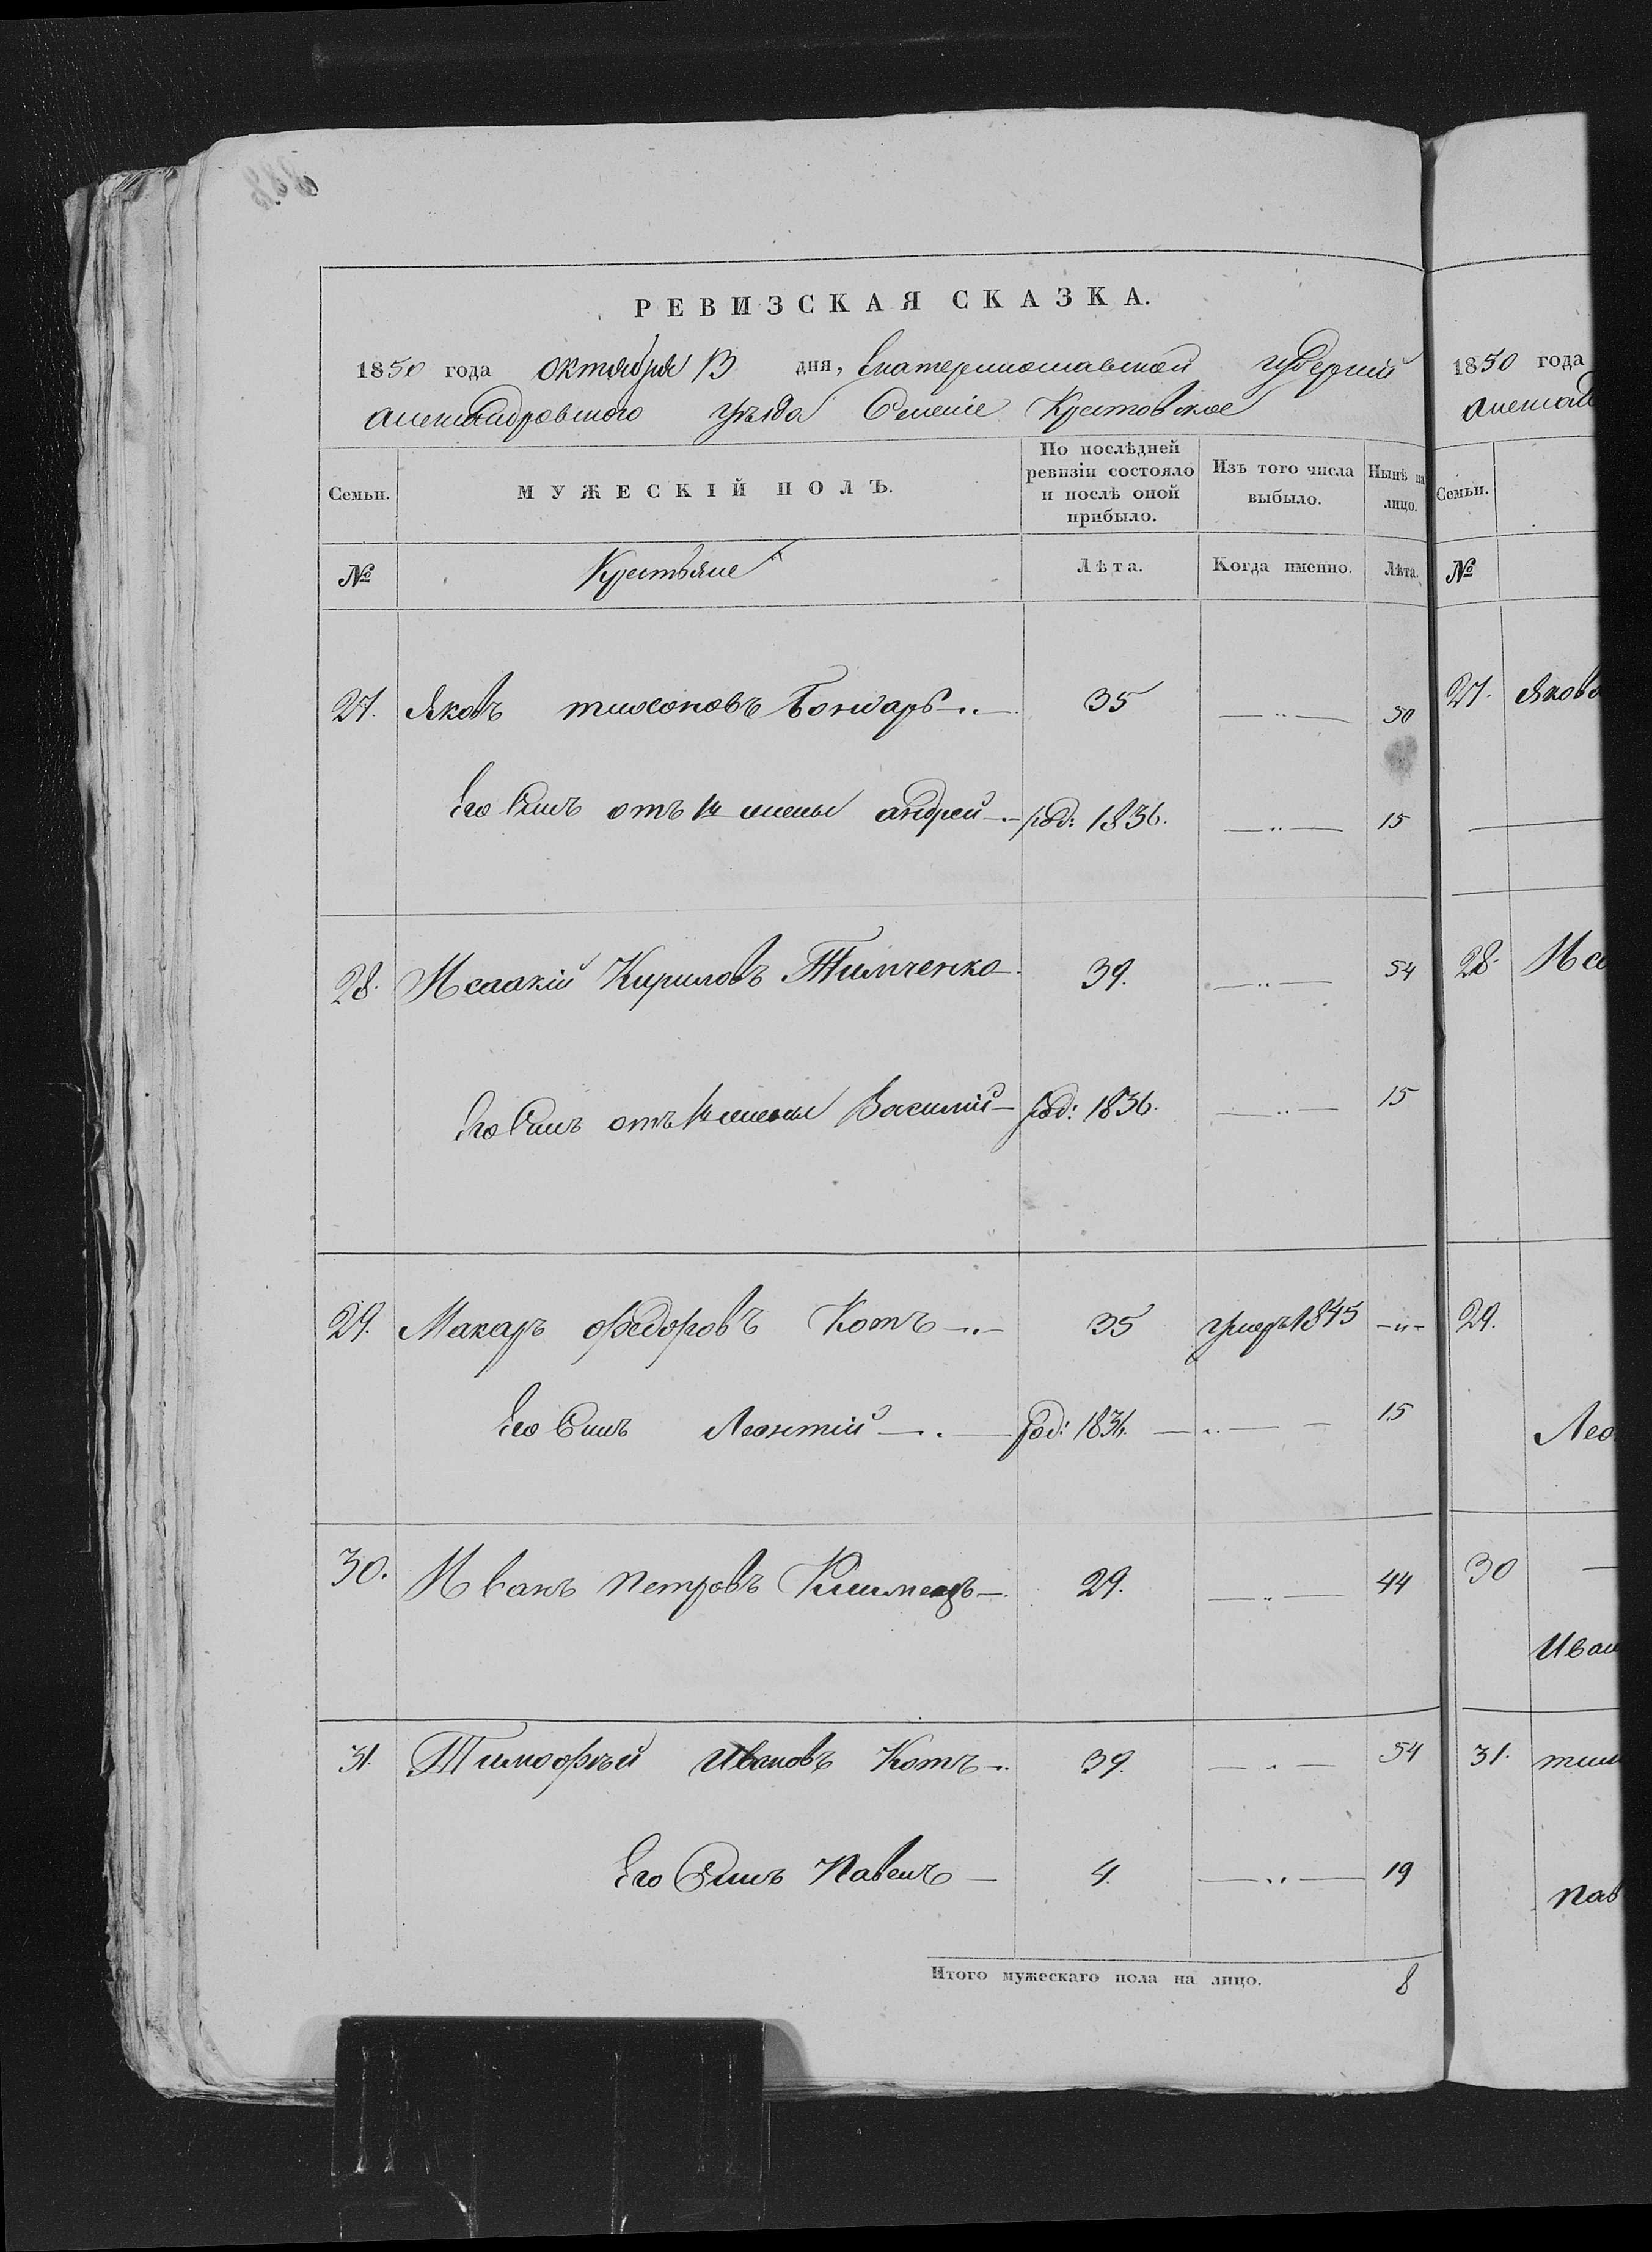 РЕВИЗСКАЯ СКАЗКА.
1850 года октября 13 дня, Екатеринославской губерніи
александровского уѣзда Селеніе Крестовское
Семьи. МУЖЕСКІЙ ПОЛЪ. По послѣдней ревизіи состояло и послѣ оной прибыло. Изъ того числа выбыло. Нынѣ на лицо.
№ Крестьяне Лѣта. Когда именно. Лѣта.
27. Яковъ Бондарь 35 — „ — 50
Его Сынъ отъ 1й жены андрей — род: 1836. — „ — 15
28. Исаакій Кириловъ Тимченко — 39. — „ — 54
Его Сынъ отъ 1й жены Василій — род: 1836. — „ — 15
29. Макаръ федоровъ Котъ — 35 умеръ 1845 — „ —
Его Сынъ Леонтій — род: 1836. — „ — 15
30. Иванъ петровъ — 29. — „ — 44
31. Тимофѣй Ивановъ Котъ 39. — „ — 54
Его Сынъ Павелъ — 4. — „ — 19
Итого мужескаго пола на лицо. 8
1850 года
александ
Семьи.
№
27. Яковъ
28. Иса
29.
Лео
30 —
Иван
31. тим
пав